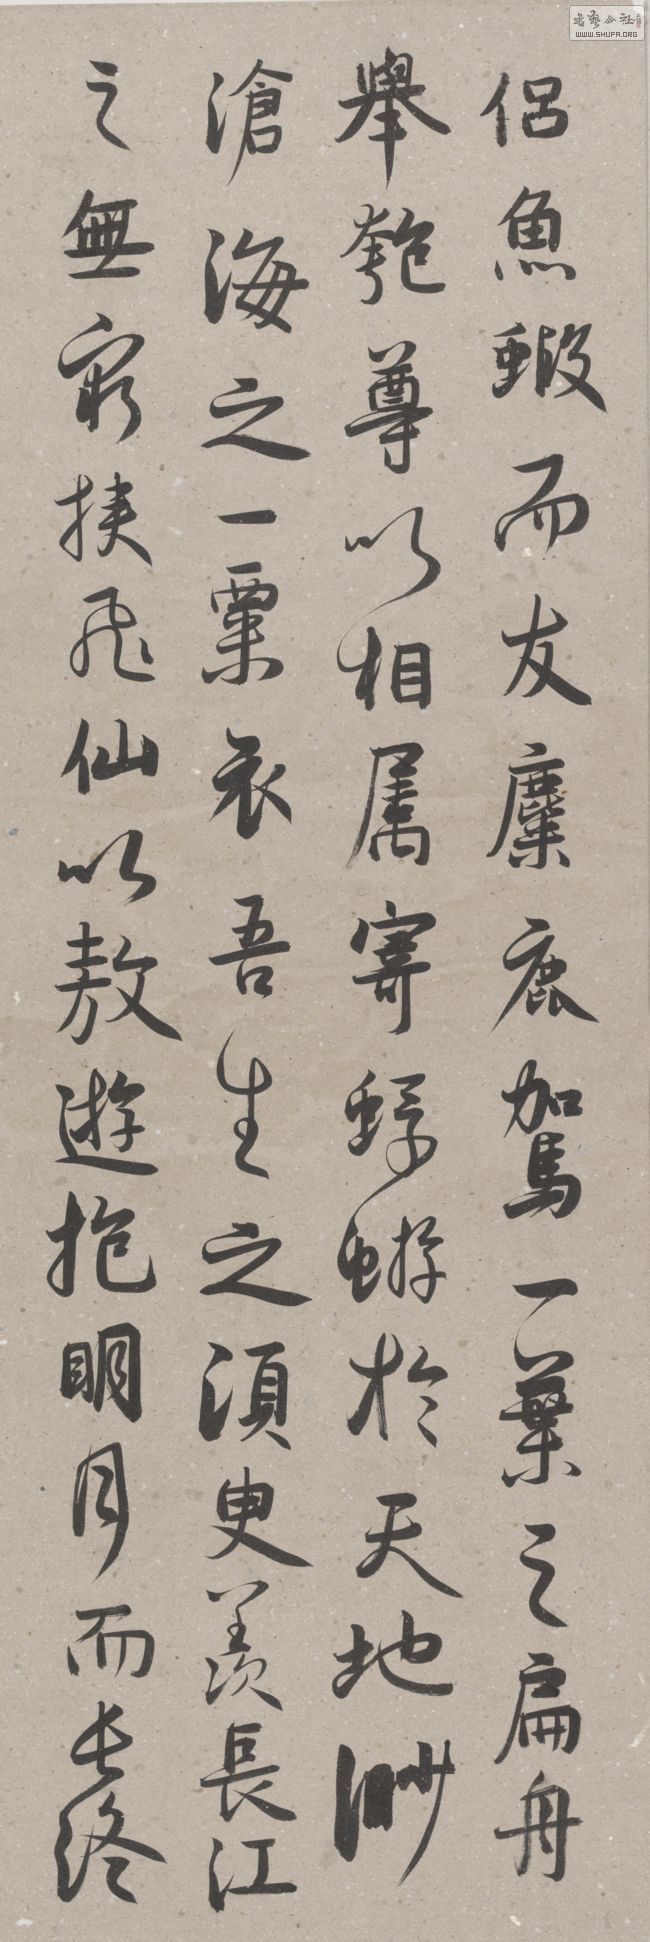 侶魚蝦而友麋鹿駕一葉之扁舟
舉匏尊以相属寄蜉蝣於天地渺
滄海之一粟哀吾生之須臾羨長江
之無窮挟飛仙以敖遊抱明月而長終
書藝公社
WWW.SHUFA.ORG